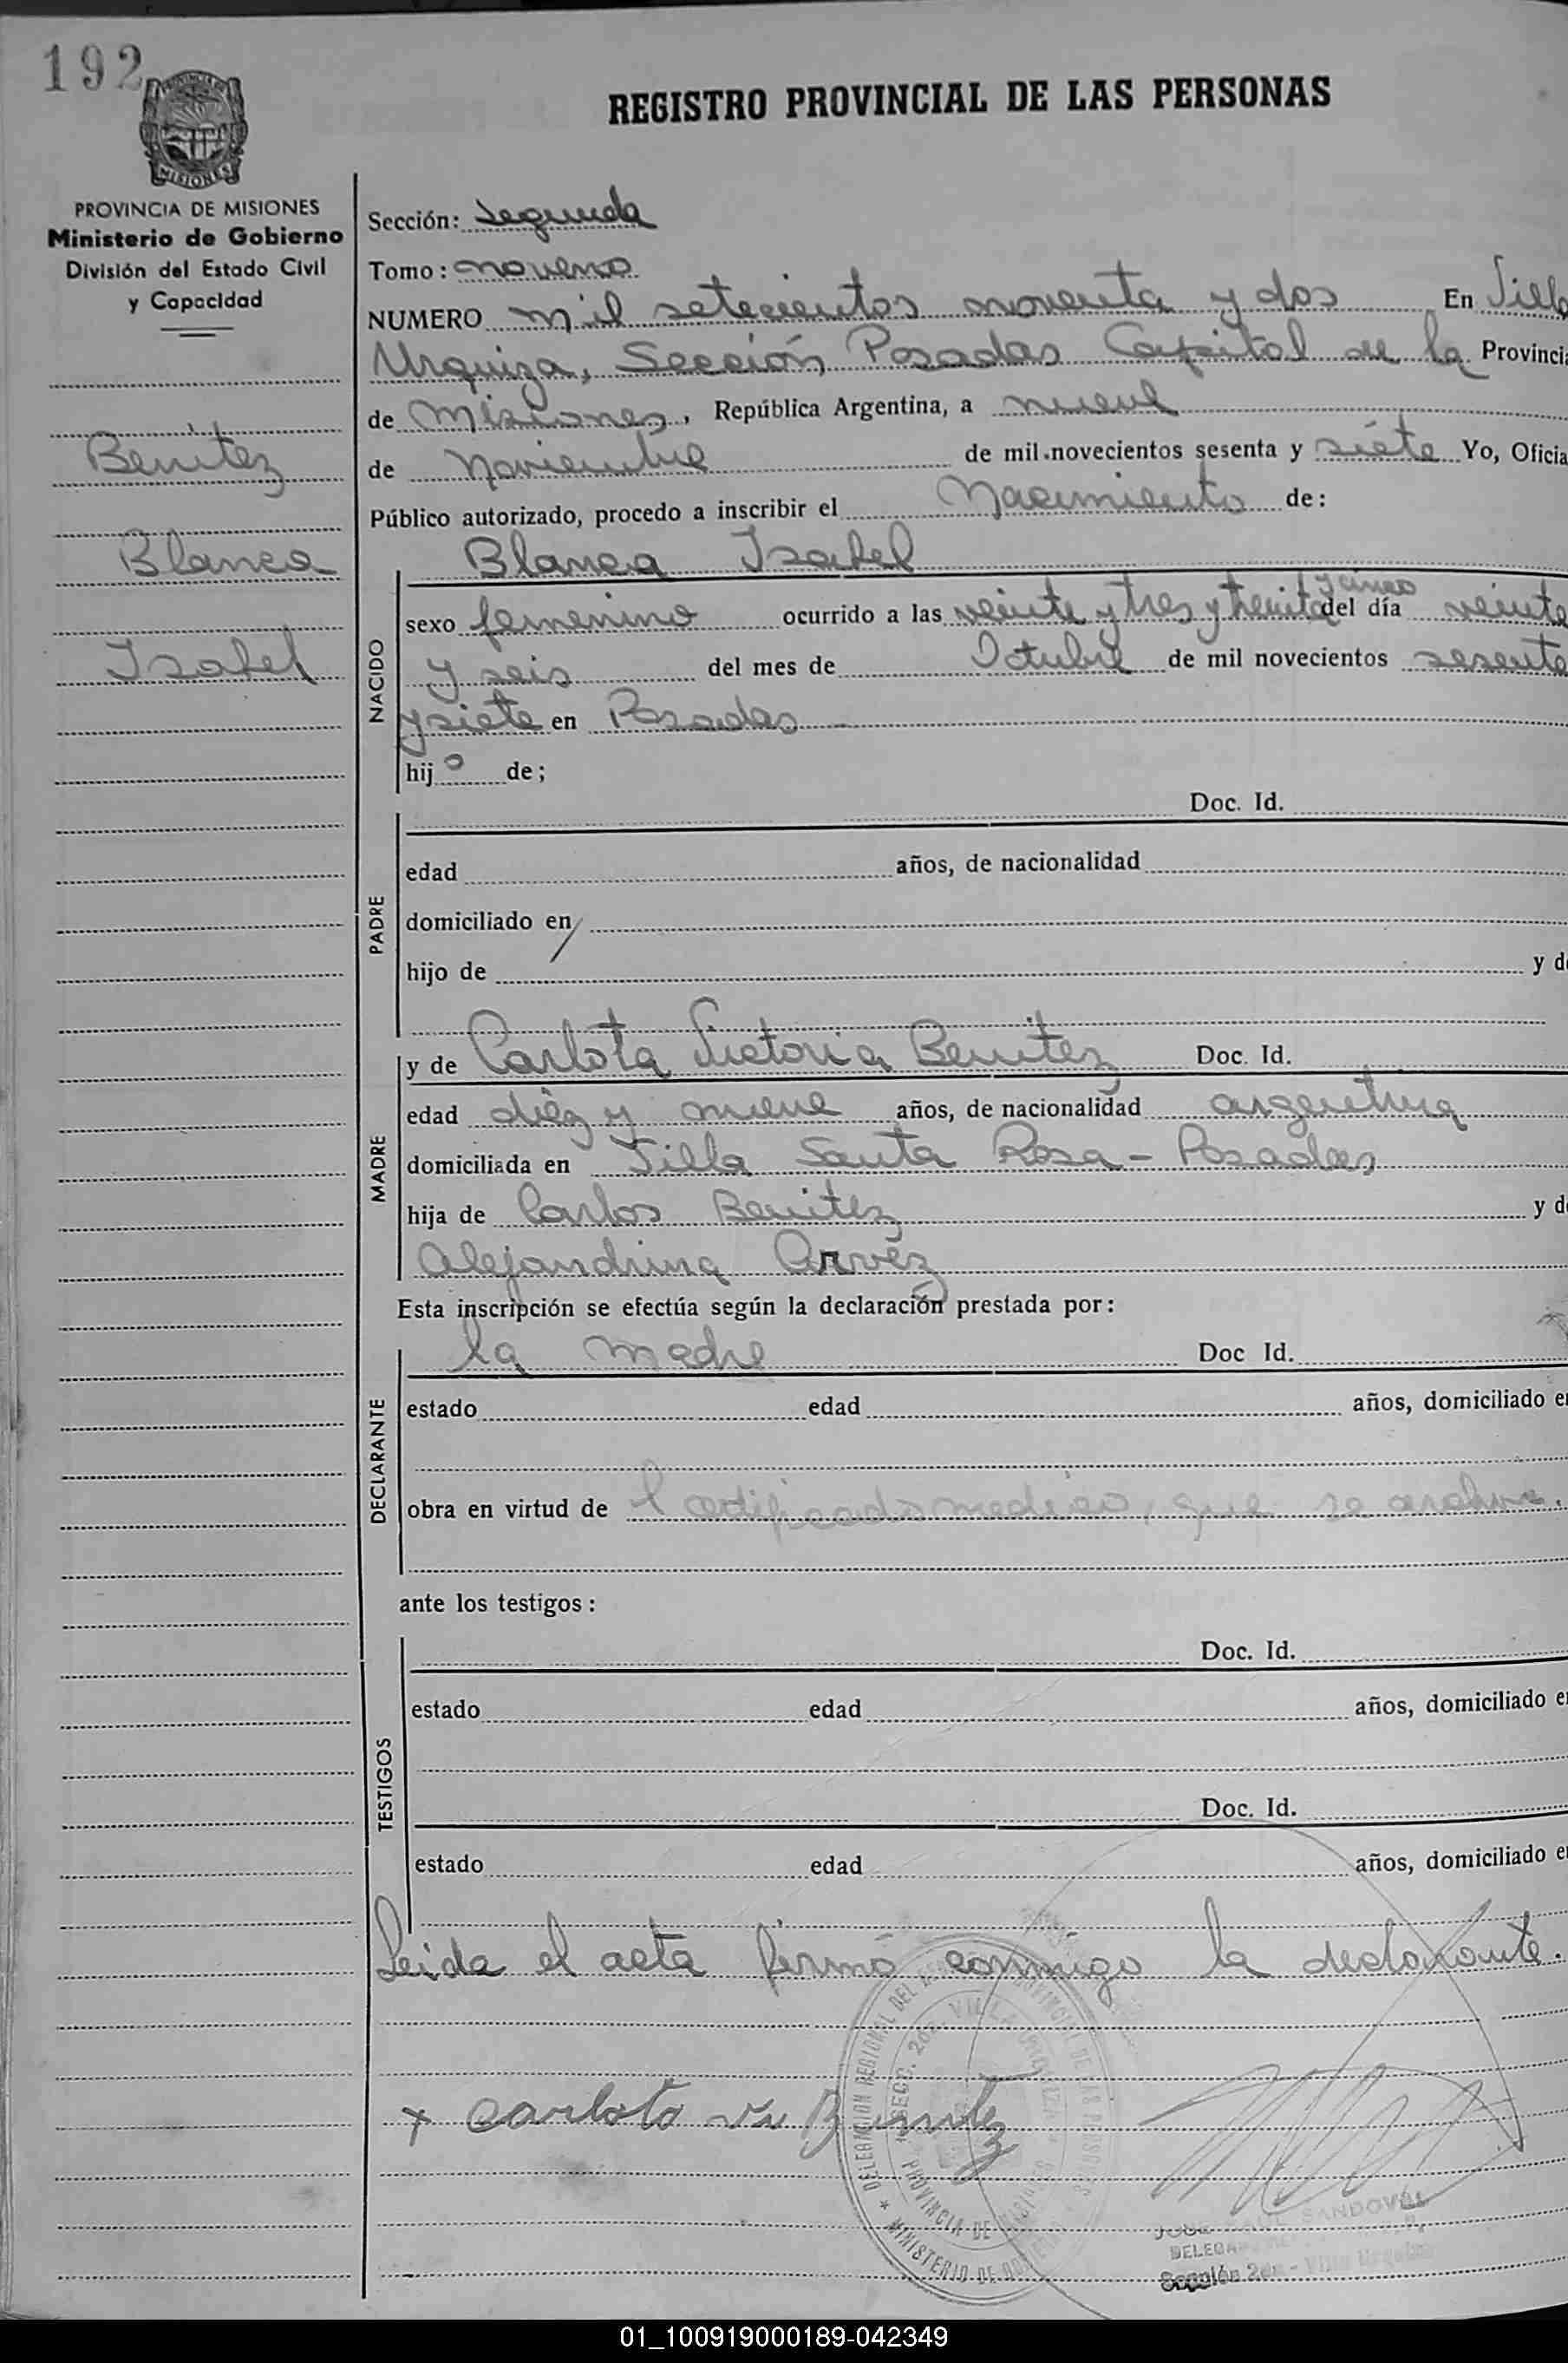 192
PROVINCIA DE MISIONES
Ministerio de Gobierno
División del Estado Civil
y Capacidad
Benitez
Blanca
Isabel
REGISTRO PROVINCIAL DE LAS PERSONAS
Sección: Segunda
Tomo: noveno
NUMERO mil setecientos noventa y dos En Villa
Urquiza, Sección Posadas Capital de la Provincia
de Misiones, República Argentina, a nueve
de Noviembre de mil novecientos sesenta y siete Yo, Oficia
Público autorizado, procedo a inscribir el Nacimiento de:
Blanca Isabel
NACIDO
sexo femenino ocurrido a las veinte y tres y treinta y cinco del día veinte
y seis del mes de Octubre de mil novecientos sesenta
y siete en Posadas -
hij a de;
PADRE
Doc. Id.
edad años, de nacionalidad
domiciliado en
hijo de y de
MADRE
y de Carlota Victoria Benitez Doc. Id.
edad diez y nueve años, de nacionalidad argentina
domiciliada en Villa Santa Rosa - Posadas
hija de Carlos Benitez y de
Alejandrina
Esta inscripción se efectúa según la declaración prestada por:
DECLARANTE
la madre Doc Id.
estado edad años, domiciliado en
obra en virtud de l certificado medico, que se archiva.
ante los testigos:
TESTIGOS
Doc. Id.
estado edad años, domiciliado en
Doc. Id.
estado edad años, domiciliado en
Leida el acta firmó conmigo la declarante.
x Carlota Vi Benitez
DELEGACION REGIONAL DEL
SECC. 2da. VILLA URQUIZA
PROVINCIA DE MISIONES
* MINISTERIO DE
SANDOVAL
Sección 2da - Villa Urquiza
01_100919000189-042349